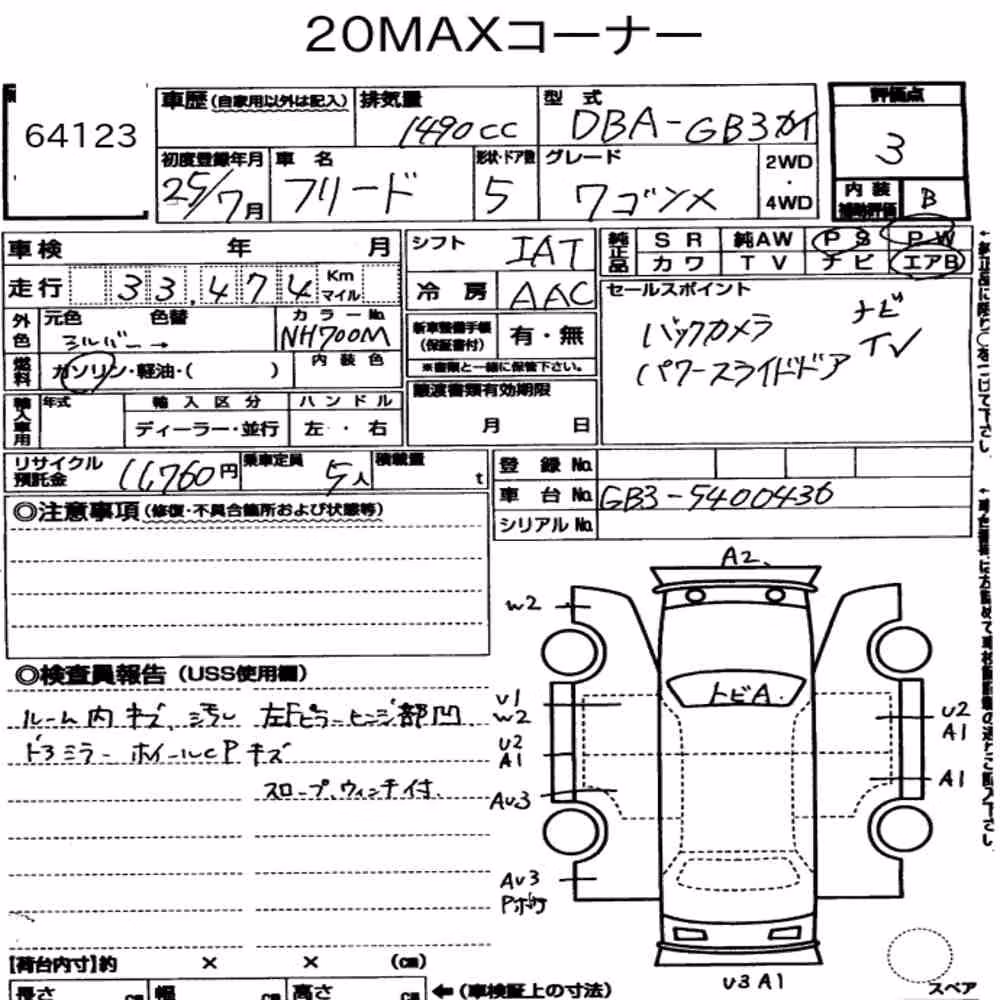 20MAXコーナー
64123
車歴 (自家用以外は記入) 排気量 1490cc 型式 DBA-GB3カイ
評価点 3
初度登録年月 25/7月 車名 フリード 形状・ドア数 5 グレード ワゴンX 2WD・4WD
内装補助評価 B
車検 年 月
シフト IAT
純正品 SR 純AW PS PW
カワ TV ナビ エアB
走行 33,474 Km マイル
冷房 AAC
セールスポイント
ナビ
バックカメラ TV
パワースライドドア
外色 元色 シルバー→ 色替 カラーNo. NH700M
新車整備手帳(保証書付) 有・無
※書類と一緒に保管下さい。
燃料 ガソリン・軽油・( ) 内装色
譲渡書類有効期限
月 日
輸入車用 年式 輸入区分 ハンドル
ディーラー・並行 左・右
リサイクル預託金 11,760円 乗車定員 5人 積載量 t
登録No.
車台No. GB3-5400436
シリアルNo.
◎注意事項(修復・不具合箇所および状態等)
◎検査員報告(USS使用欄)
ルーム内キズ、汚れ 左Fピラーヒンジ部凹
ドアミラー ホイールCPキズ
スロープ、ウィンチ付.
A2、
W2
トビA.
U1
W2
U2
A1
U2
A1
A1
AU3
AU3
U3 A1
【荷台内寸】約 × × (cm)
長さ cm 幅 cm 高さ cm ←(車検証上の寸法)
スペア